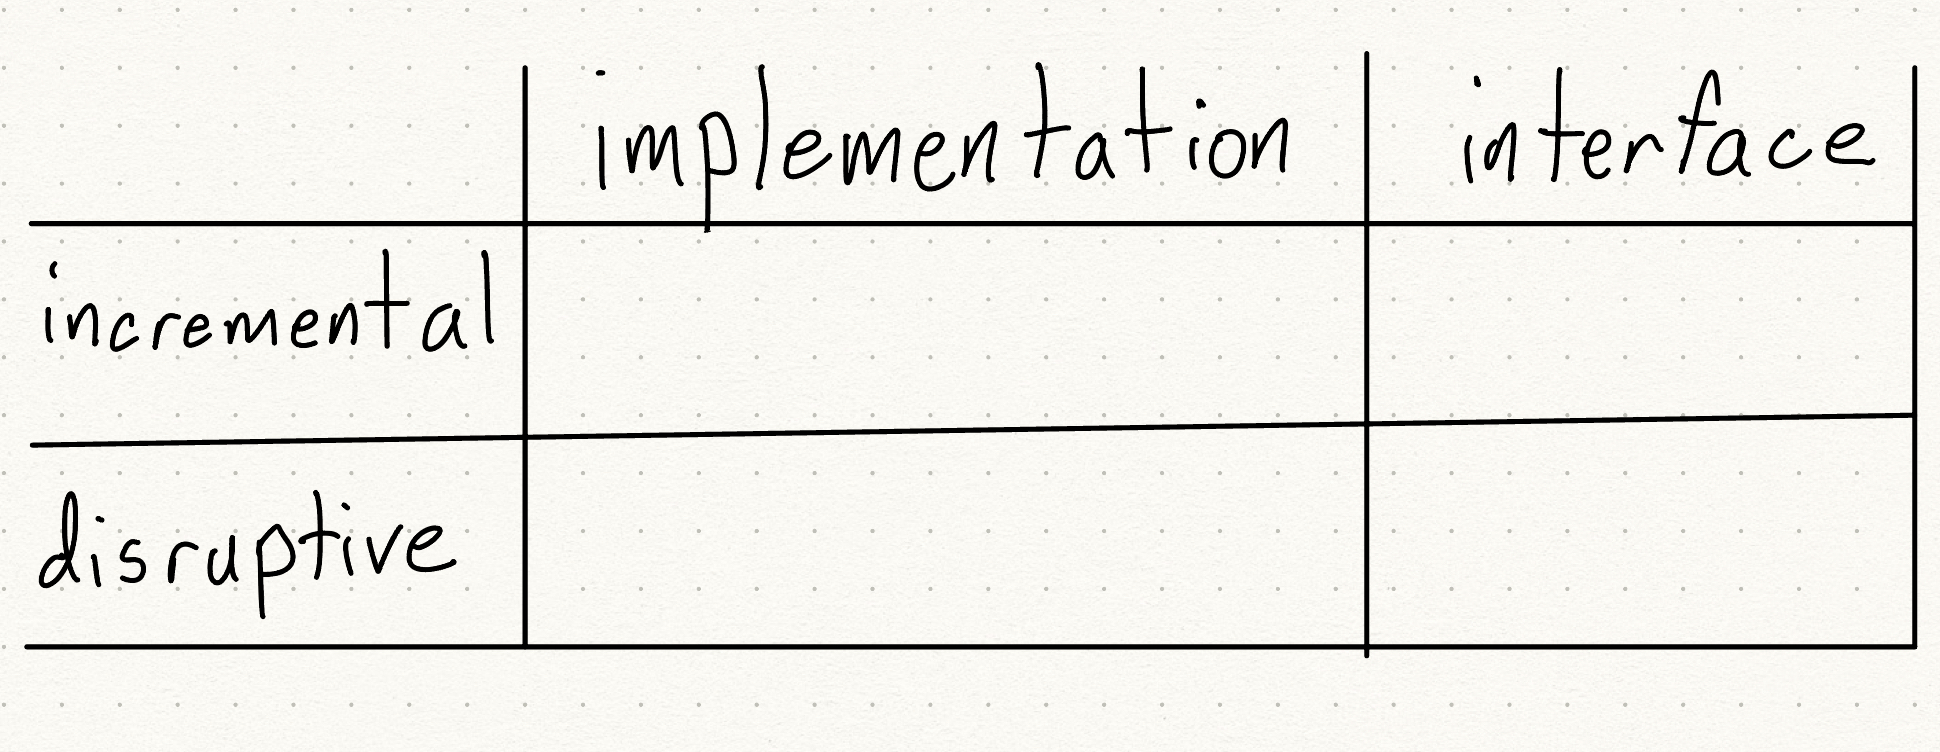 implementation interface
incremental
disruptive